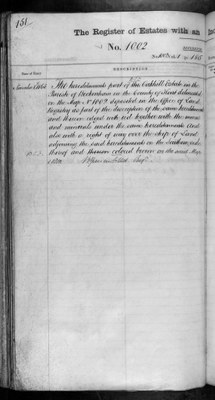 151.
The Register of Estates with an
No. 1002
DESCRIPTION.
Date of Entry
The hereditaments part of the Oakhill Estate in the
Parish of Beckenham in the County of Kent delineated
in the Map No. 1002 deposited in the Office of Land
Registry as part of the description of the same hereditaments
and thereon edged with red together with the mines
and minerals under the same hereditaments And
also with a right of way over the strips of Land
adjoining the said hereditaments on the Southern side
thereof and thereon colored brown on the said Map
1002